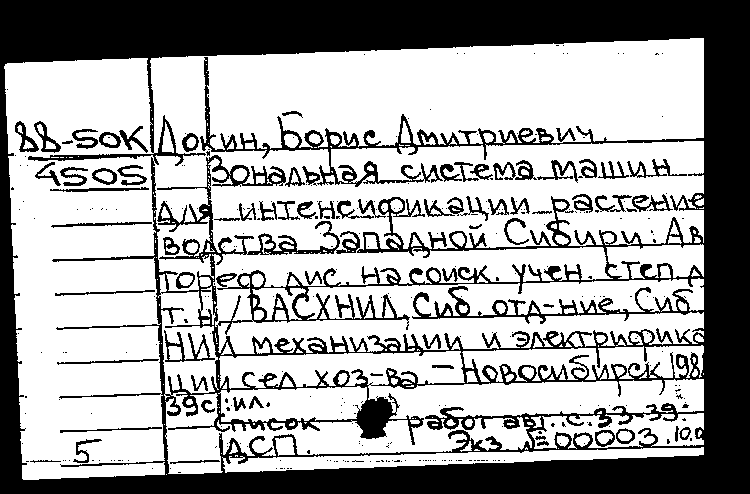 88-50К Докин, Борис Дмитриевич.
4505 Зональная система машин
для интенсификации растение
водства Западной Сибири: Ав
тореф. дис. на соиск. учен. степ. д
т. н / ВАСХНИЛ, Сиб. отд-ние, Сиб
НИИ механизации и электрифика
ции сел. хоз-ва. – Новосибирск,
39с.:ил.
Список работ авт.: с. 33-39.
5 ДСП. Экз. №00003.